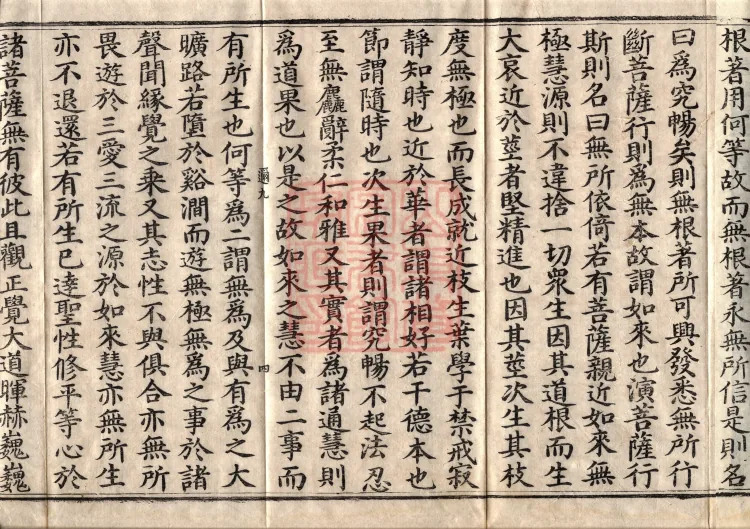 根著用何等故而無根著永無所信是則名
曰為究暢矣則無根著所可興發悉無所行
斷菩薩行則為無本故謂如來也演菩薩行
斯則名曰無所依倚若有菩薩親近如來無
極慧源則不違捨一切眾生因其道根而生
大哀近於莖者堅精進也因其莖次生其枝
度無極也而長成就近枝生葉學于禁戒寂
靜知時也近於華者謂諸相好若干德本也
節謂隨時也次生果者則謂究暢不起法忍
至無麤辭柔仁和雅又其實者為諸通慧則
為道果也以是之故如來之慧不由二事而
有所生也何等為二謂無為及與有為之大
曠路若墮於谿澗而遊無極無為之事於諸
聲聞緣覺之乘又其志性不與俱合亦無所
畏遊於三愛三流之源於如來慧亦無所生
亦不退還若有所生已逹聖性修平等心於
諸菩薩無有彼此且觀正覺大道暉赫巍巍
九
四